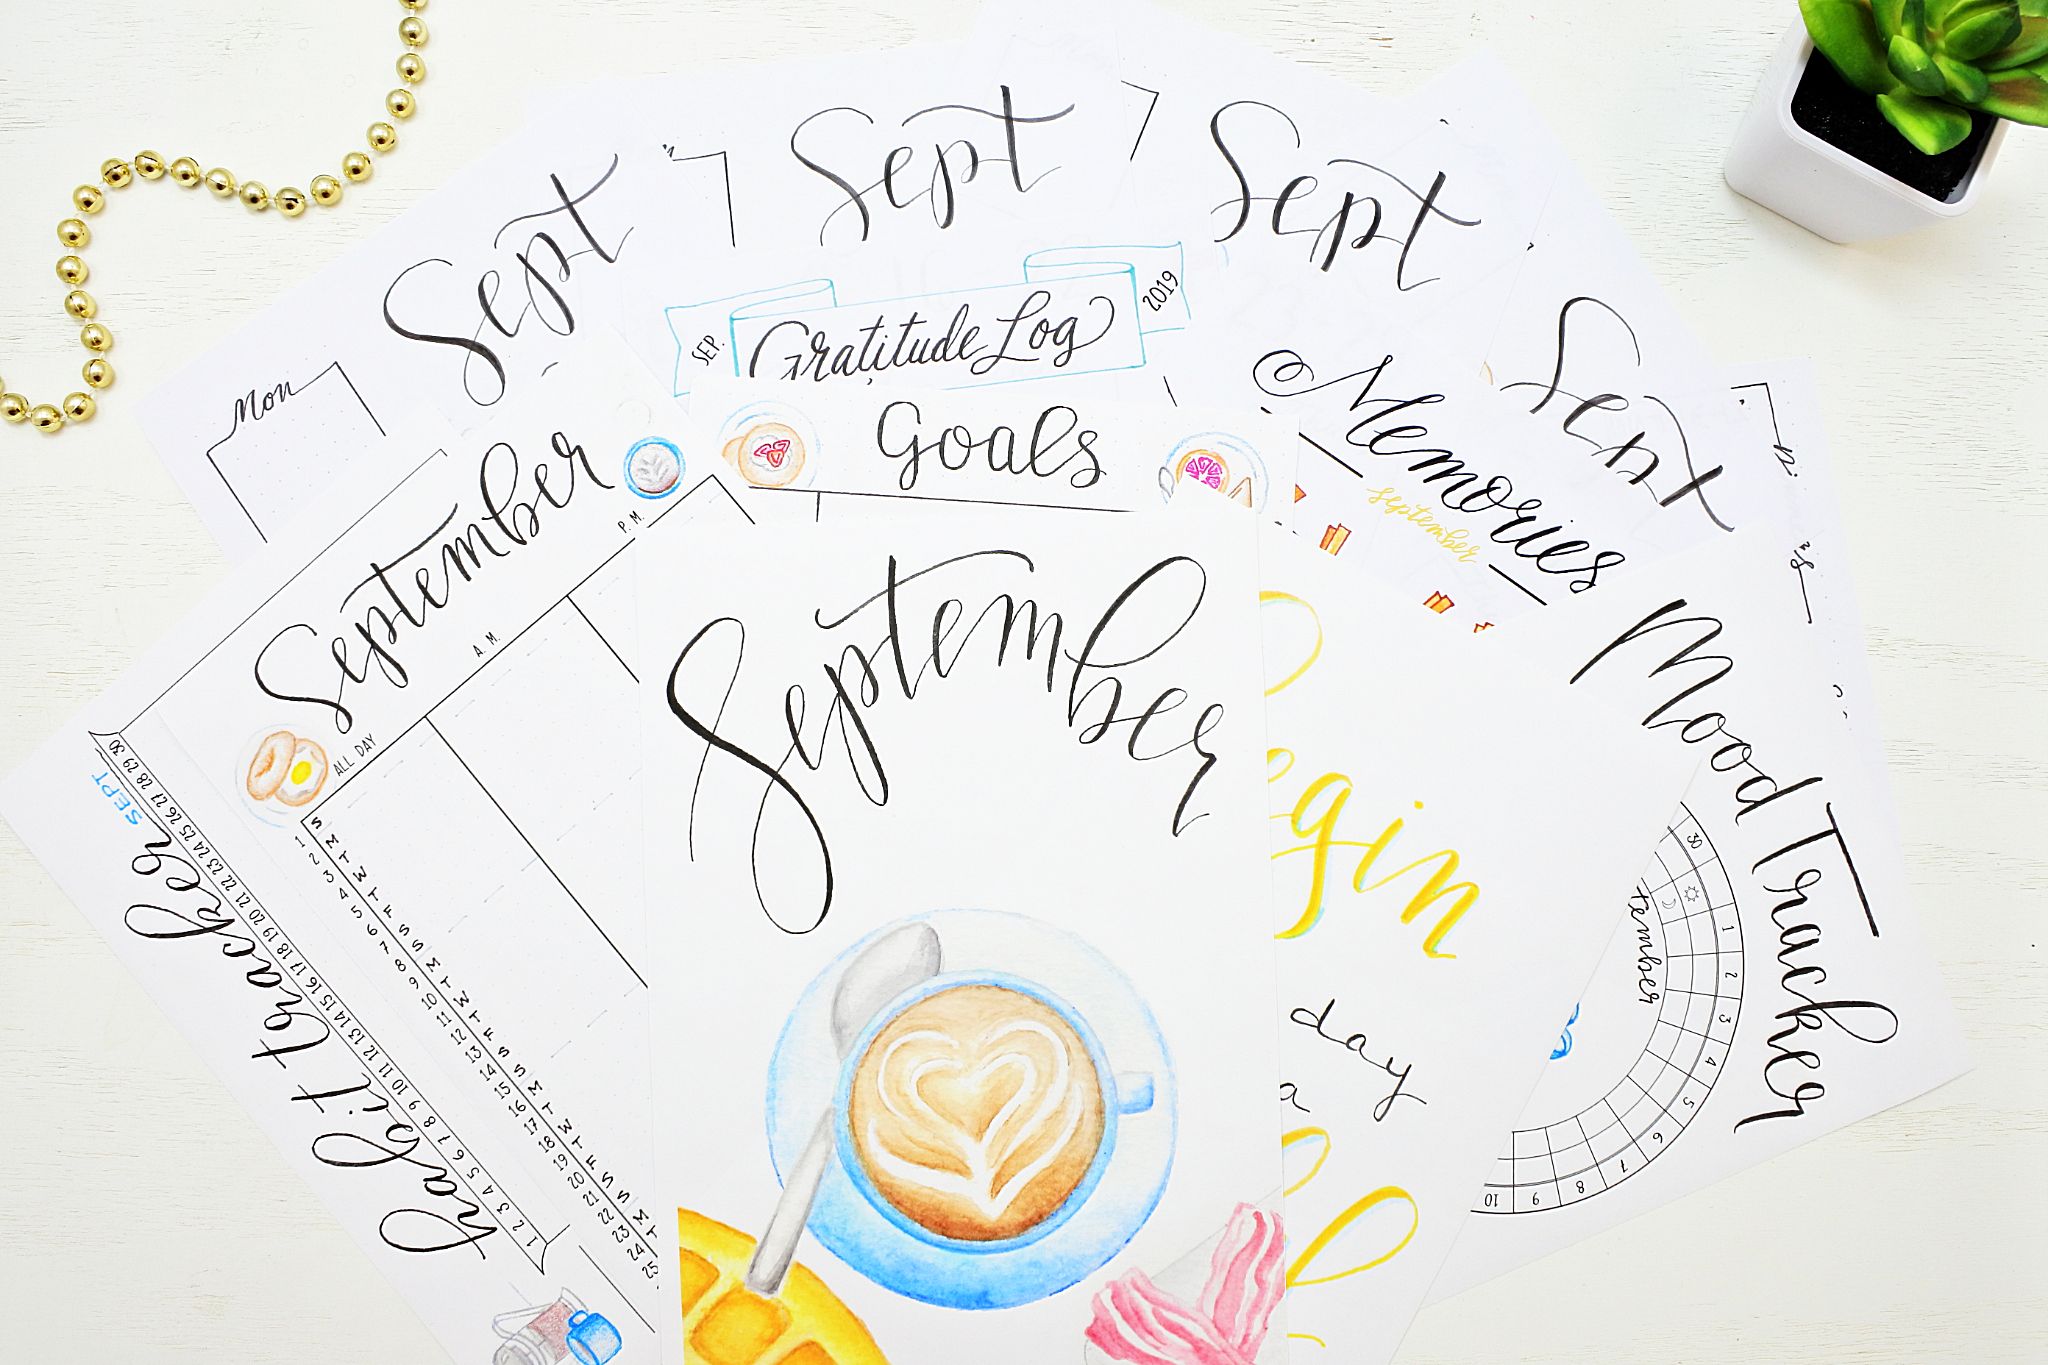 Sept
Sept
Sept
Sept
Mon
SEP.
Gratitude Log
2019
Goals
Memories
september
September
P.M.
A.M.
ALL DAY
September
Mood Tracker
30 1 2 3 4 5 6 7 8 9 10
tember
egin
day
a
habit tracker
SEPT
1 2 3 4 5 6 7 8 9 10 11 12 13 14 15 16 17 18 19 20 21 22 23 24 25 26 27 28 29 30
S
1 M
2 T
3 W
4 T
5 F
6 S
7 S
8 M
9 T
10 W
11 T
12 F
13 S
14 S
15 M
16 T
17 W
18 T
19 F
20 S
21 S
22 M
23 T
24
25